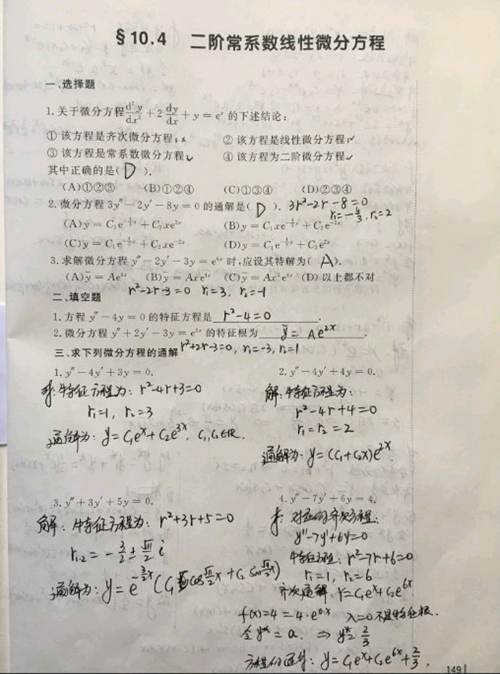 §10.4 二阶常系数线性微分方程
一、选择题
1.关于微分方程d²y/dx²+2dy/dx+y=eˣ的下述结论:
①该方程是齐次微分方程;× ②该方程是线性微分方程;✓
③该方程是常系数微分方程;✓ ④该方程为二阶微分方程.✓
其中正确的是( D ).
(A)①②③ (B)①②④ (C)①③④ (D)②③④
2.微分方程3y″-2y′-8y=0的通解是( D ). 3r²-2r-8=0
r₁=-4/3, r₂=2
(A)y=C₁e + C₂xe²ˣ (B)y=C₁xe + C₂e⁻²ˣ
(C)y=C₁e + C₂e⁻²ˣ (D)y=C₁e + C₂e²ˣ
3.求解微分方程y″-2y′-3y= 时,应设其特解为( A ).
(A)ȳ=Ae (B)ȳ=Ax e (C)ȳ=Ax e (D)以上都不对
r²-2r-3=0 r₁=3, r₂=-1
二、填空题
1.方程y″-4y=0的特征方程是 r²-4=0 .
2.微分方程y″+2y′-3y=e²ˣ的特征根为 ȳ=Ae²ˣ .
r²+2r-3=0, r₁=-3, r₂=1
三、求下列微分方程的通解
1.y″-4y′+3y=0. 2.y″-4y′+4y=0.
特征方程为: r²-4r+3=0
r₁=1, r₂=3
通解为: y=C₁eˣ+C₂e³ˣ, C₁,C₂∈R.
解: 特征方程为:
r²-4r+4=0
r₁=r₂=2
通解为: y=(C₁+C₂x)e²ˣ.
3.y″+3y′+5y=0. 4.y″-7y′+6y=4.
解: 特征方程为: r²+3r+5=0
r₁,₂=-3/2±√11/2 i
通解为: y=e^(-3/2 x)(C₁cos√11/2 x+C₂sin√11/2 x)
对应的齐次方程:
y″-7y′+6y=0
特征方程: r²-7r+6=0
r₁=1, r₂=6
齐次通解: Y=C₁eˣ+C₂e⁶ˣ
f(x)=4=4·e⁰ˣ λ=0不是特征根.
令y*=a. ⇒ y*=2/3
方程的通解: y=C₁eˣ+C₂e⁶ˣ+2/3.
149